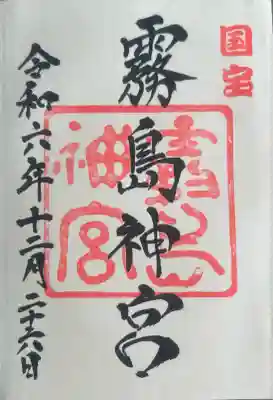 国宝
霧島神宮
霧島神宮
令和六年十二月二十六日